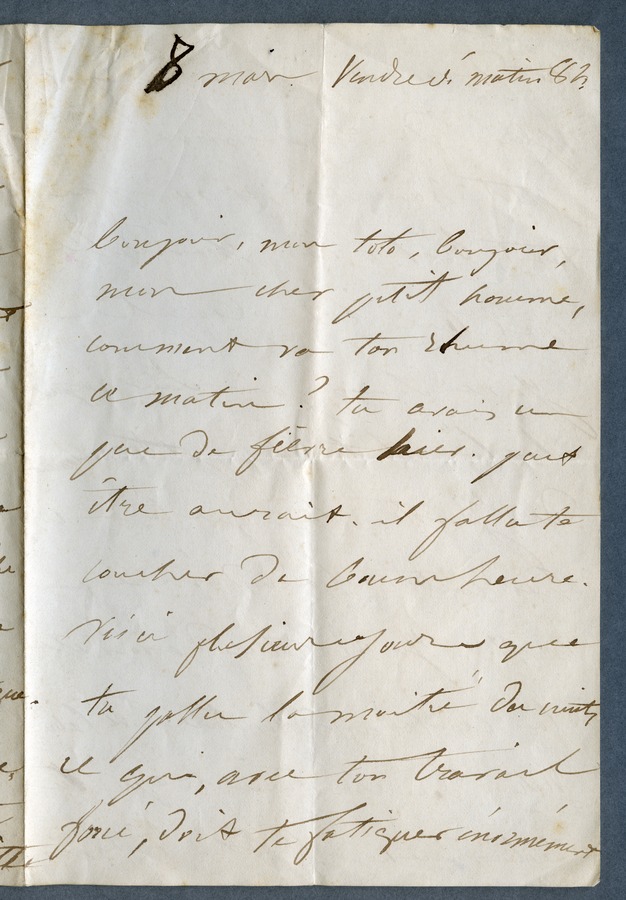 8 mars Vendredi matin 8 h.
Bonjour, mon toto, bonjour,
mon cher petit homme,
comment va ton rhume
ce matin ? tu avais un
peu de fièvre hier. peut
être aurait-il fallu te
coucher de bonne heure.
Voici plusieurs jours que
tu passes la moitié des nuits
ce qui, avec ton travail
forcé, doit te fatiguer énormément